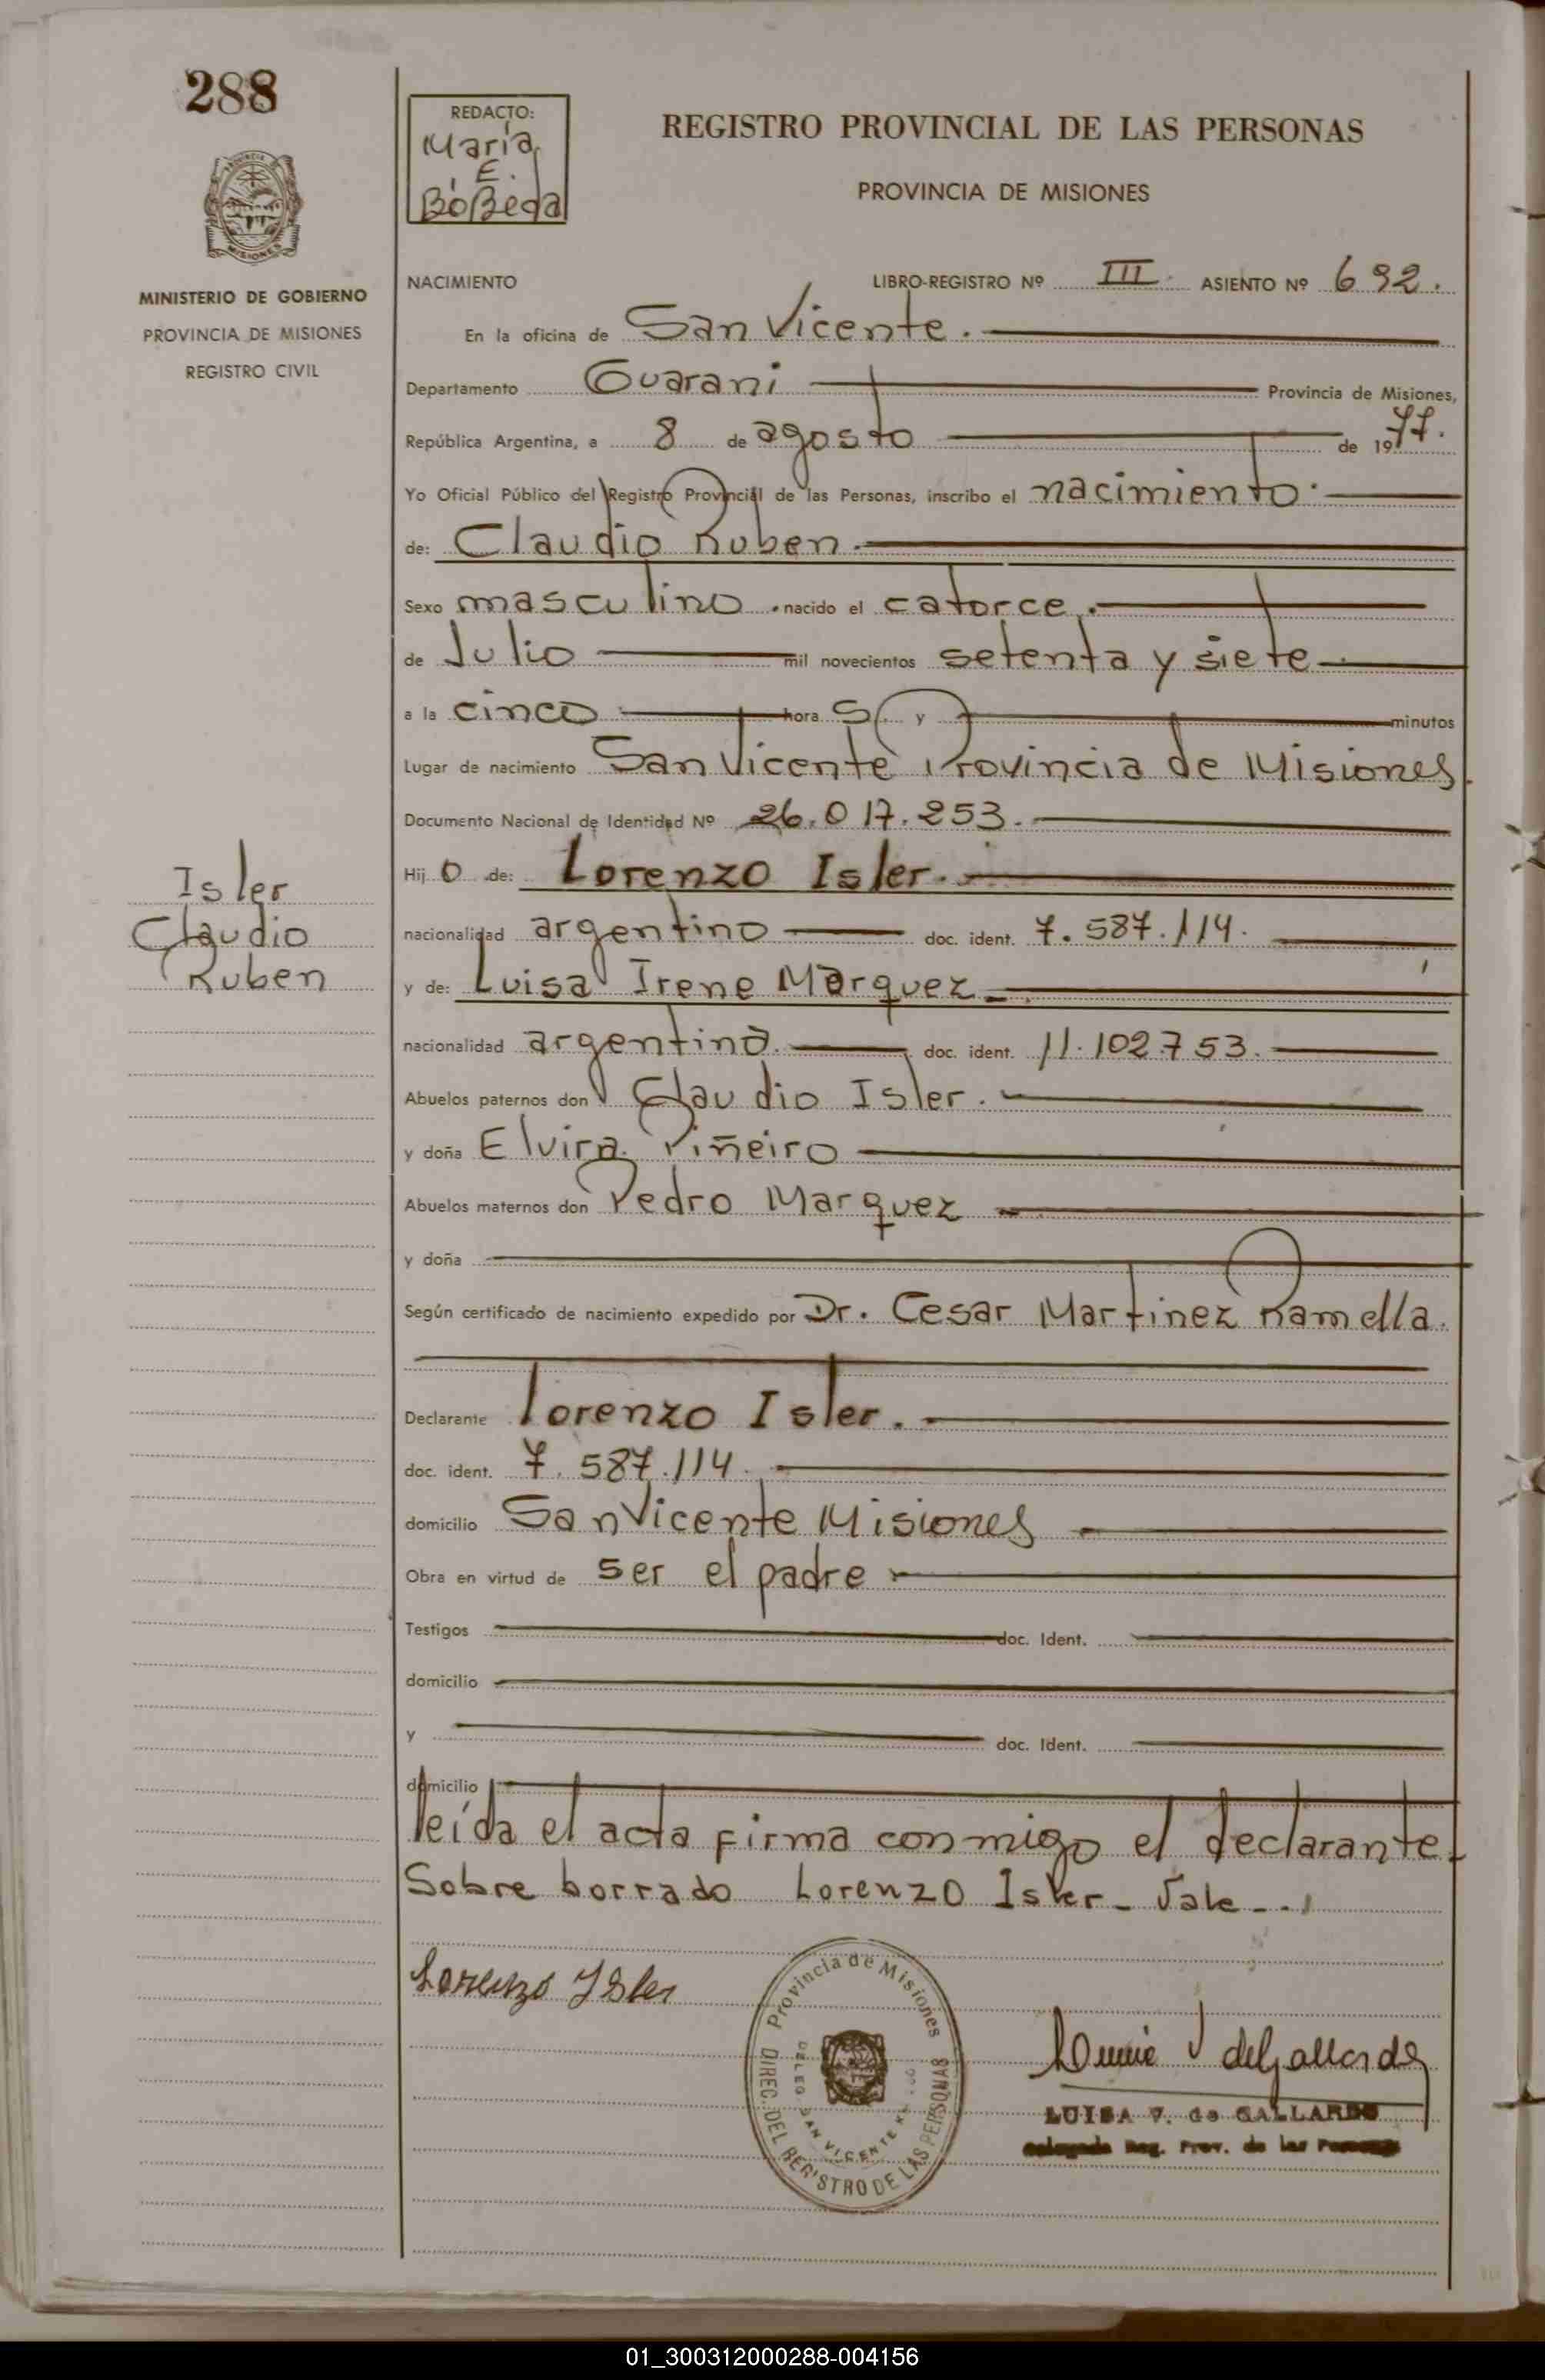 288
REDACTO:
María
E.
BóBeda
REGISTRO PROVINCIAL DE LAS PERSONAS
PROVINCIA DE MISIONES
MISIONES
MINISTERIO DE GOBIERNO
PROVINCIA DE MISIONES
REGISTRO CIVIL
NACIMIENTO LIBRO-REGISTRO Nº III ASIENTO Nº 692.
En la oficina de San Vicente.
Departamento Guarani Provincia de Misiones,
República Argentina, a 8 de agosto de 1977.
Yo Oficial Público del Registro Provincial de las Personas, inscribo el nacimiento
de: Claudio Ruben.
Sexo masculino. nacido el catorce.
de Julio mil novecientos setenta y siete
a la cinco hora S. y minutos
Lugar de nacimiento San Vicente Provincia de Misiones.
Documento Nacional de Identidad Nº 26.017.253.
Hij o de: Lorenzo Isler.
nacionalidad argentino doc. ident. 7.587.114.
y de: Luisa Irene Marquez
nacionalidad argentina. doc. ident. 11.102.753.
Abuelos paternos don Claudio Isler.
y doña Elvira Piñeiro
Abuelos maternos don Pedro Marquez
y doña
Según certificado de nacimiento expedido por Dr. Cesar Martinez Ramella.
Declarante Lorenzo Isler.
doc. ident. 7.587.114.
domicilio San Vicente Misiones
Obra en virtud de ser el padre
Testigos doc. Ident.
domicilio
y doc. Ident.
domicilio
leída el acta firma conmigo el declarante.
Sobre borrado Lorenzo Isler - Vale -
Isler
Claudio
Ruben
Lorenzo Isler
Provincia de Misiones
DIREC. DEL REGISTRO DE LAS PERSONAS
DELEG. SAN VICENTE
de Gallardo
LUISA V. de GALLARDO
Delegada Reg. Prov. de las Personas
01_300312000288-004156